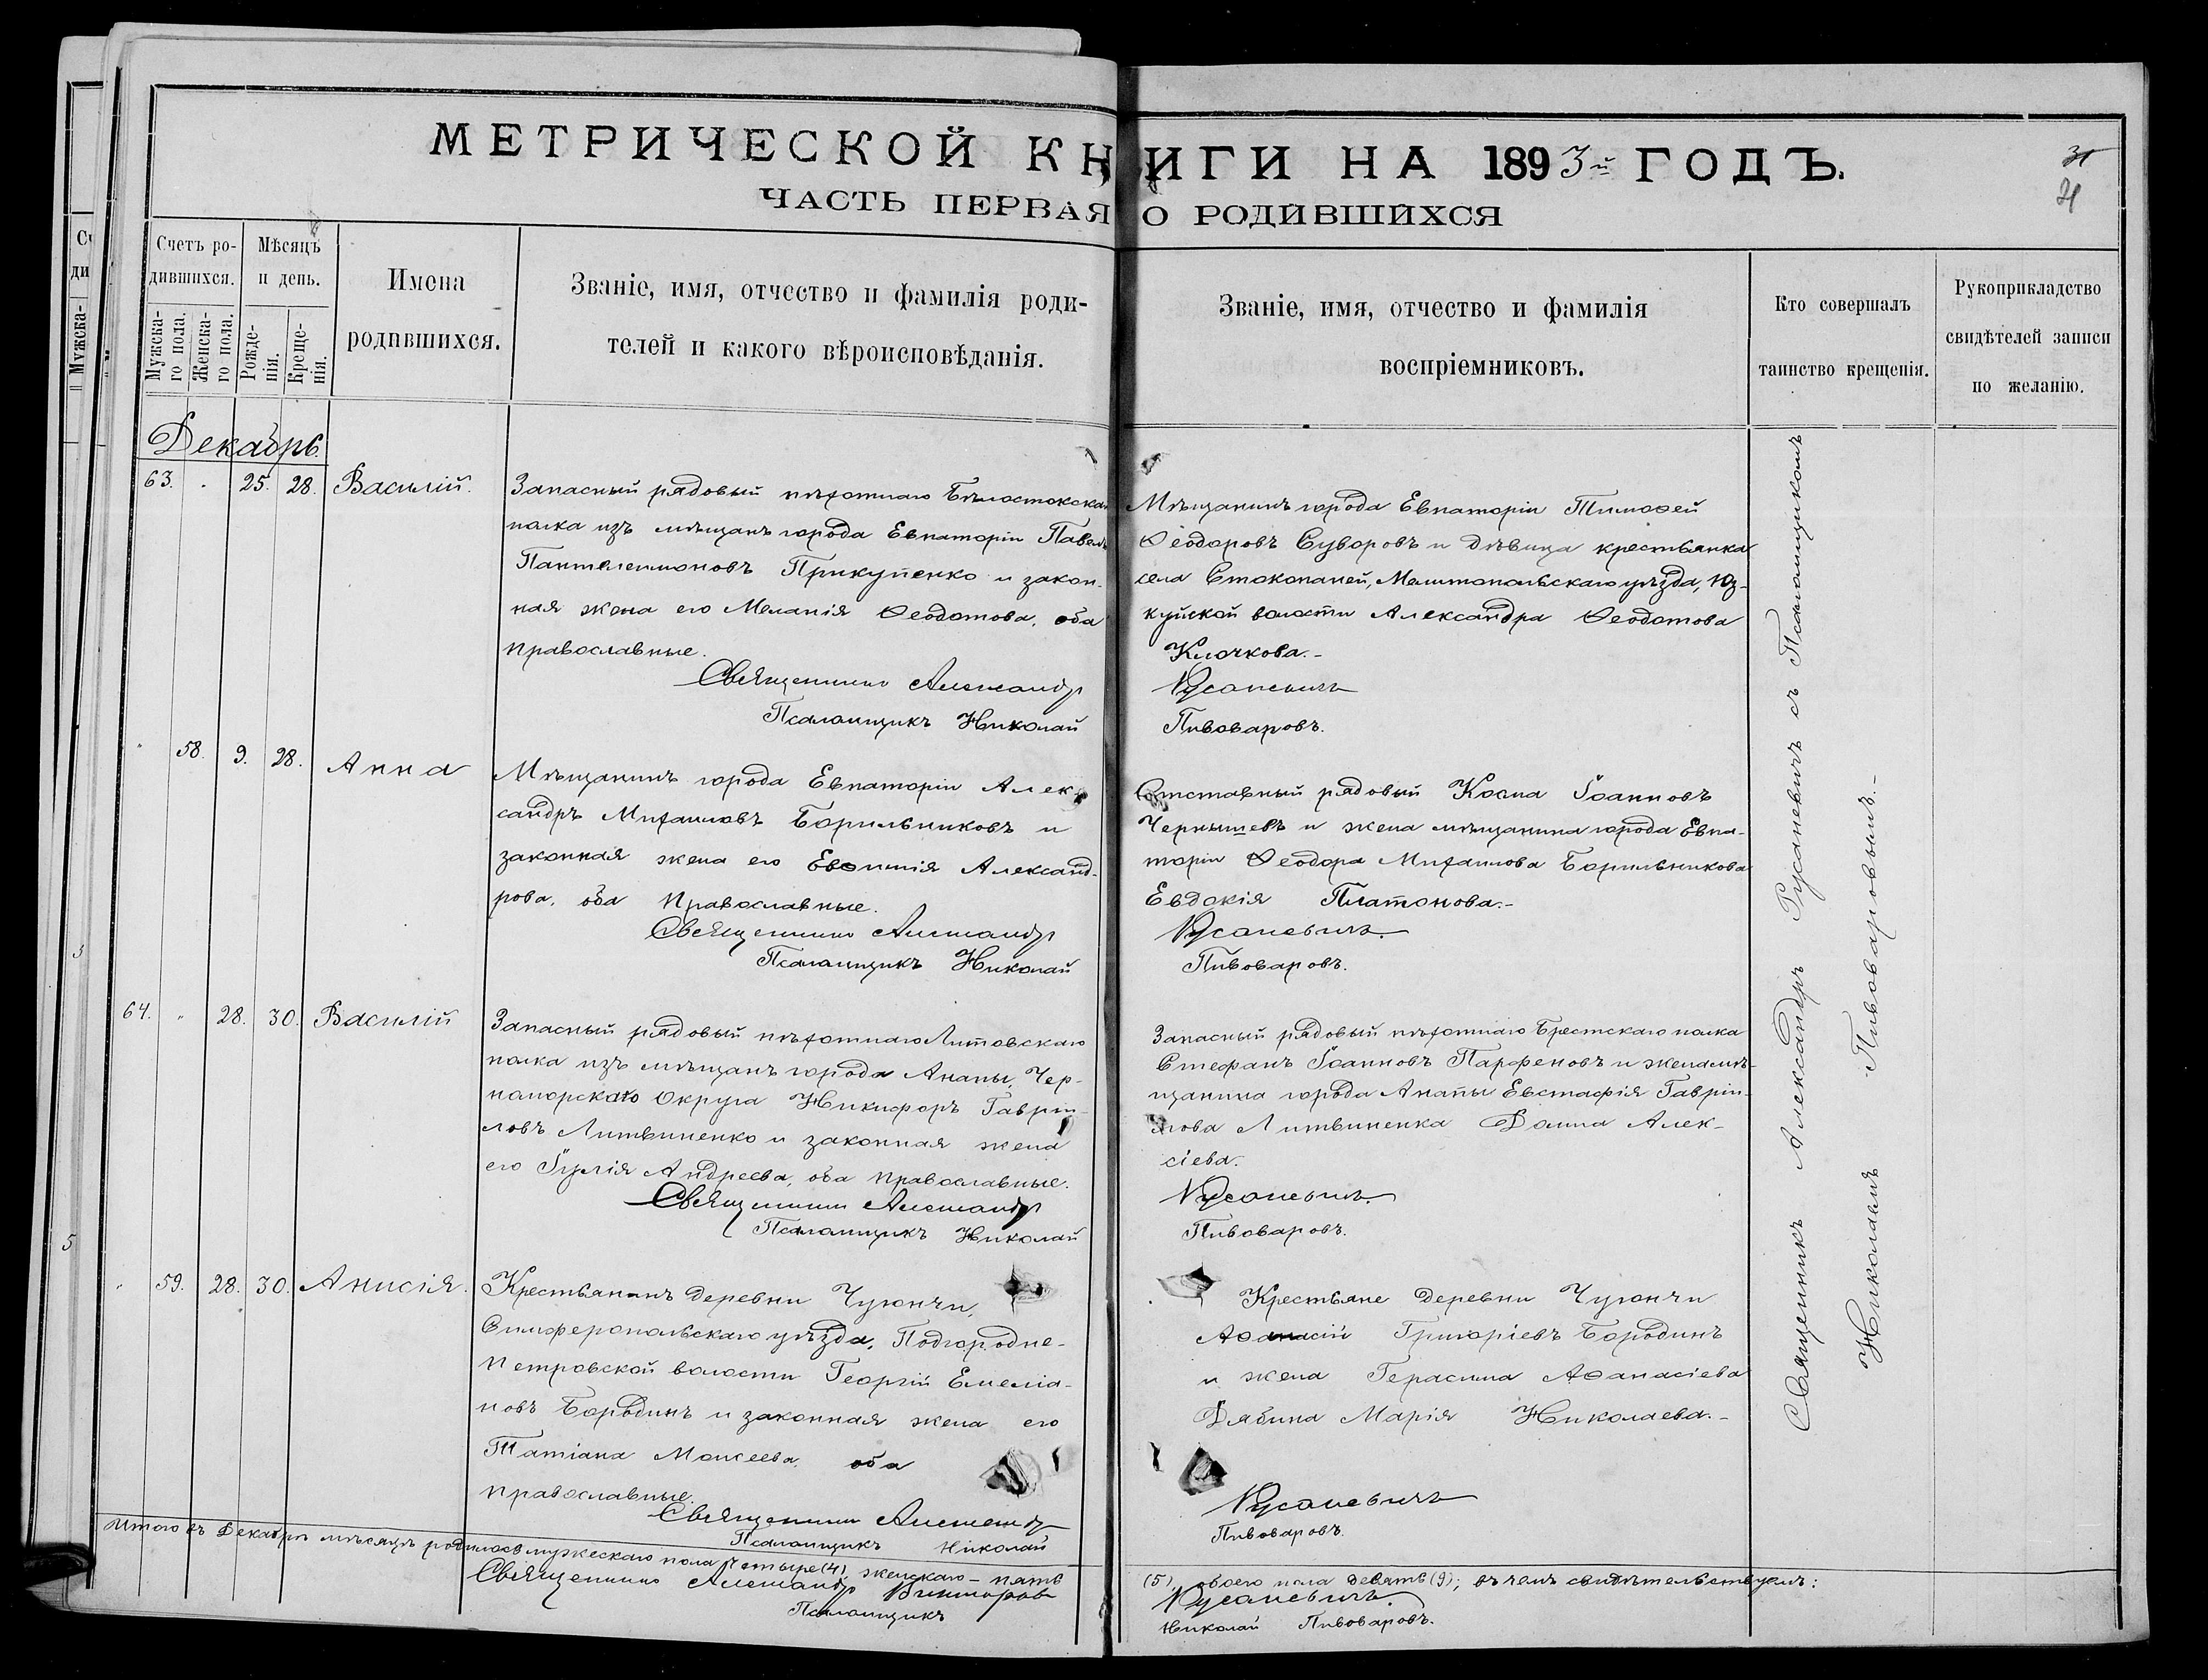 МЕТРИЧЕСКОЙ КНИГИ НА 1893й ГОДЪ.
ЧАСТЬ ПЕРВАЯ О РОДИВШИХСЯ
31
Счетъ ро-
дившихся.
Мужска-
го пола.
Женска-
го пола.
Мѣсяцъ
и день.
Рожде-
нія.
Креще-
нія.
Имена
родившихся.
Званіе, имя, отчество и фамилія роди-
телей и какого вѣроисповѣданія.
Званіе, имя, отчество и фамилія
воспріемниковъ.
Кто совершалъ
таинство крещенія.
Рукоприкладство
свидѣтелей записи
по желанію.
Декабрь.
63. 25. 28. Василій.
Запасный рядовый пѣхотнаго Бѣлостокскаго
полка изъ мѣщанъ города Евпаторіи Павелъ
Пантелеимоновъ Прикупенко и закон-
ная жена его Меланія Ѳеодотова, оба
православные.
Священникъ Александр
Псаломщикъ Николай
Мѣщанинъ города Евпаторіи Тимоѳей
Ѳеодоровъ Суворовъ и дѣвица крестьянка
села Стокопаней, Мелитопольскаго уѣзда, Юз-
куйской волости Александра Ѳеодотова
Клочкова.-
Русаневичъ
Пивоваровъ.
58. 9. 28. Анна
Мѣщанинъ города Евпаторіи Алек-
сандръ Михаиловъ Борильниковъ и
законная жена его Евѳимія Александ-
рова, оба православные.
Священникъ Александр
Псаломщикъ Николай
Отставный рядовый Косма Іоанновъ
Чернышевъ и жена мѣщанина города Евпа-
торіи Ѳеодора Михаилова Борильникова
Евдокія Платонова.-
Русаневичъ.
Пивоваровъ.
64. 28. 30. Василій
Запасный рядовый пѣхотнаго Литовскаго
полка изъ мѣщанъ города Анапы, Чер-
номорскаго Округа Никифоръ Гавріи-
ловъ Литвиненко и законная жена
его Іулія Андреева, оба православные.
Священникъ Александр
Псаломщикъ Николай
Запасный рядовый пѣхотнаго Брестскаго полка
Стефанъ Іоанновъ Парфеновъ и жена мѣ-
щанина города Анапы Евстафія Гавріи-
лова Литвиненка Домна Алек-
сіева.
Русаневичъ.
Пивоваровъ.
59. 28. 30. Анисія.
Крестьянинъ деревни Чуюнчи,
Симферопольскаго уѣзда, Подгородне-
Петровской волости Георгій Емеліа-
новъ Бородинъ и законная жена его
Татіана Моисеева, оба
православные.
Священникъ Александр
Псаломщикъ Николай
Крестьяне деревни Чуюнчи
Аѳанасій Григоріевъ Бородинъ
и жена Герасима Аѳанасіева
Дябина Марія Николаева.-
Русаневичъ
Пивоваровъ.
Священникъ Александръ Русаневичъ съ Псаломщикомъ
Николаемъ Пивоваровымъ.-
Итого въ Декабрѣ мѣсяцѣ родилось мужескаго пола четыре (4), женскаго - пять
(5), обоего пола девять (9); въ чемъ свидѣтельствуемъ:
Священникъ Александр Викторов Русаневичъ.
Псаломщикъ Николай Пивоваровъ.